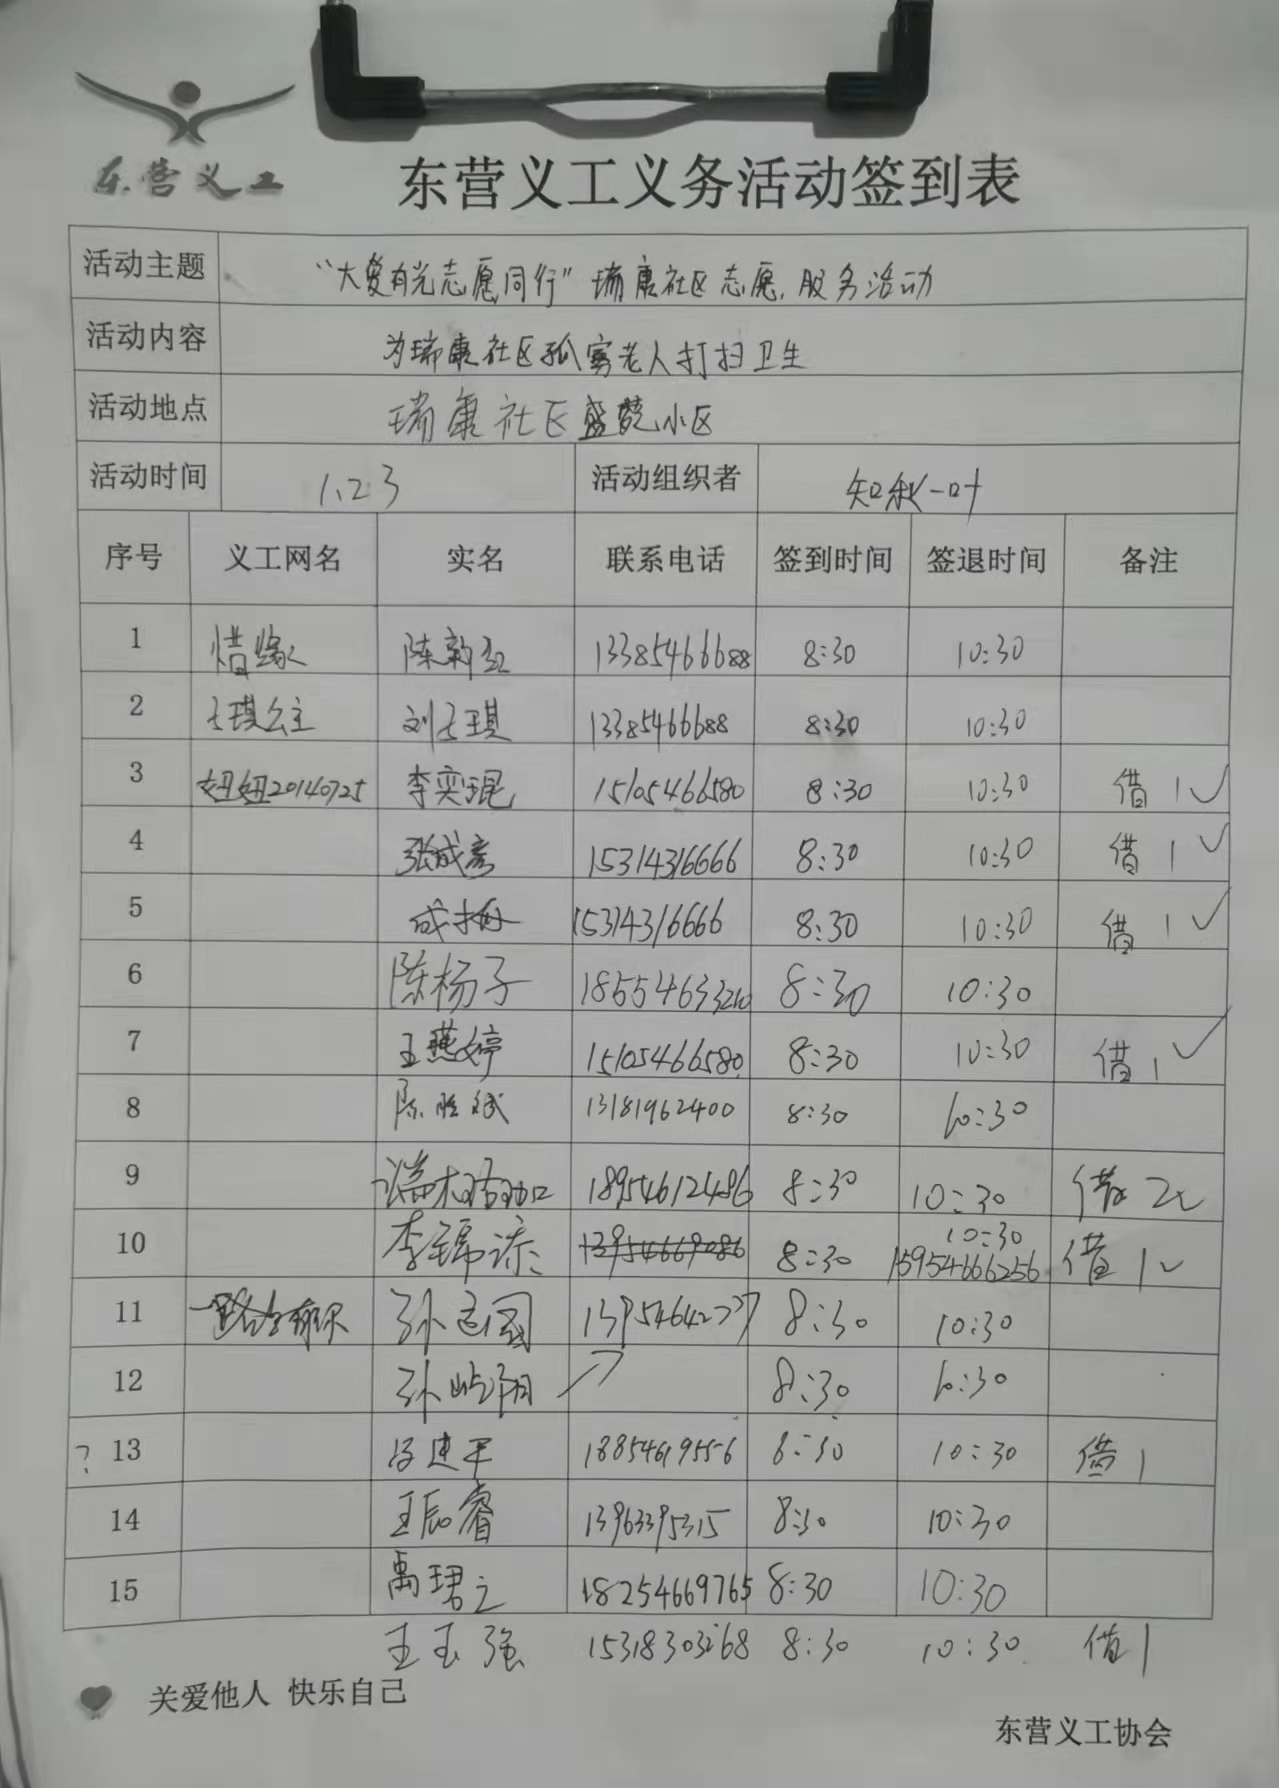 东营义工
东营义工义务活动签到表
活动主题 “大爱有光志愿同行”瑞康社区志愿服务活动
活动内容 为瑞康社区孤寡老人打扫卫生
活动地点 瑞康社区盛懿小区
活动时间 1.23 活动组织者 知秋一叶
序号 义工网名 实名 联系电话 签到时间 签退时间 备注
1 惜缘 陈新红 13385466688 8:30 10:30
2 壬琪公主 刘壬琪 13385466688 8:30 10:30
3 妞妞20140725 李奕琨 15105466580 8:30 10:30 借1✓
4 张成彦 15314316666 8:30 10:30 借1✓
5 成梅 15314316666 8:30 10:30 借1✓
6 陈杨子 18554633210 8:30 10:30
7 王慧婷 15105466580 8:30 10:30 借1✓
8 陈胜斌 13181962400 8:30 10:30
9 18954612486 8:30 10:30 借2✓
10 李锦添 13954669086 8:30 10:30 15954666256 借1✓
11 一路有你 孙运国 13954642737 8:30 10:30
12 孙屿阳 8:30 10:30
? 13 冯建平 18854619556 8:30 10:30 借1
14 王辰睿 13963395315 8:30 10:30
15 禹珺之 18254669765 8:30 10:30
王玉强 15318303268 8:30 10:30 借1
关爱他人 快乐自己
东营义工协会